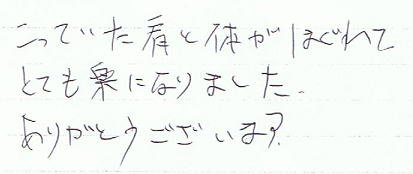 こっていた肩と体がほぐれて
とても楽になりました.
ありがとうございます。